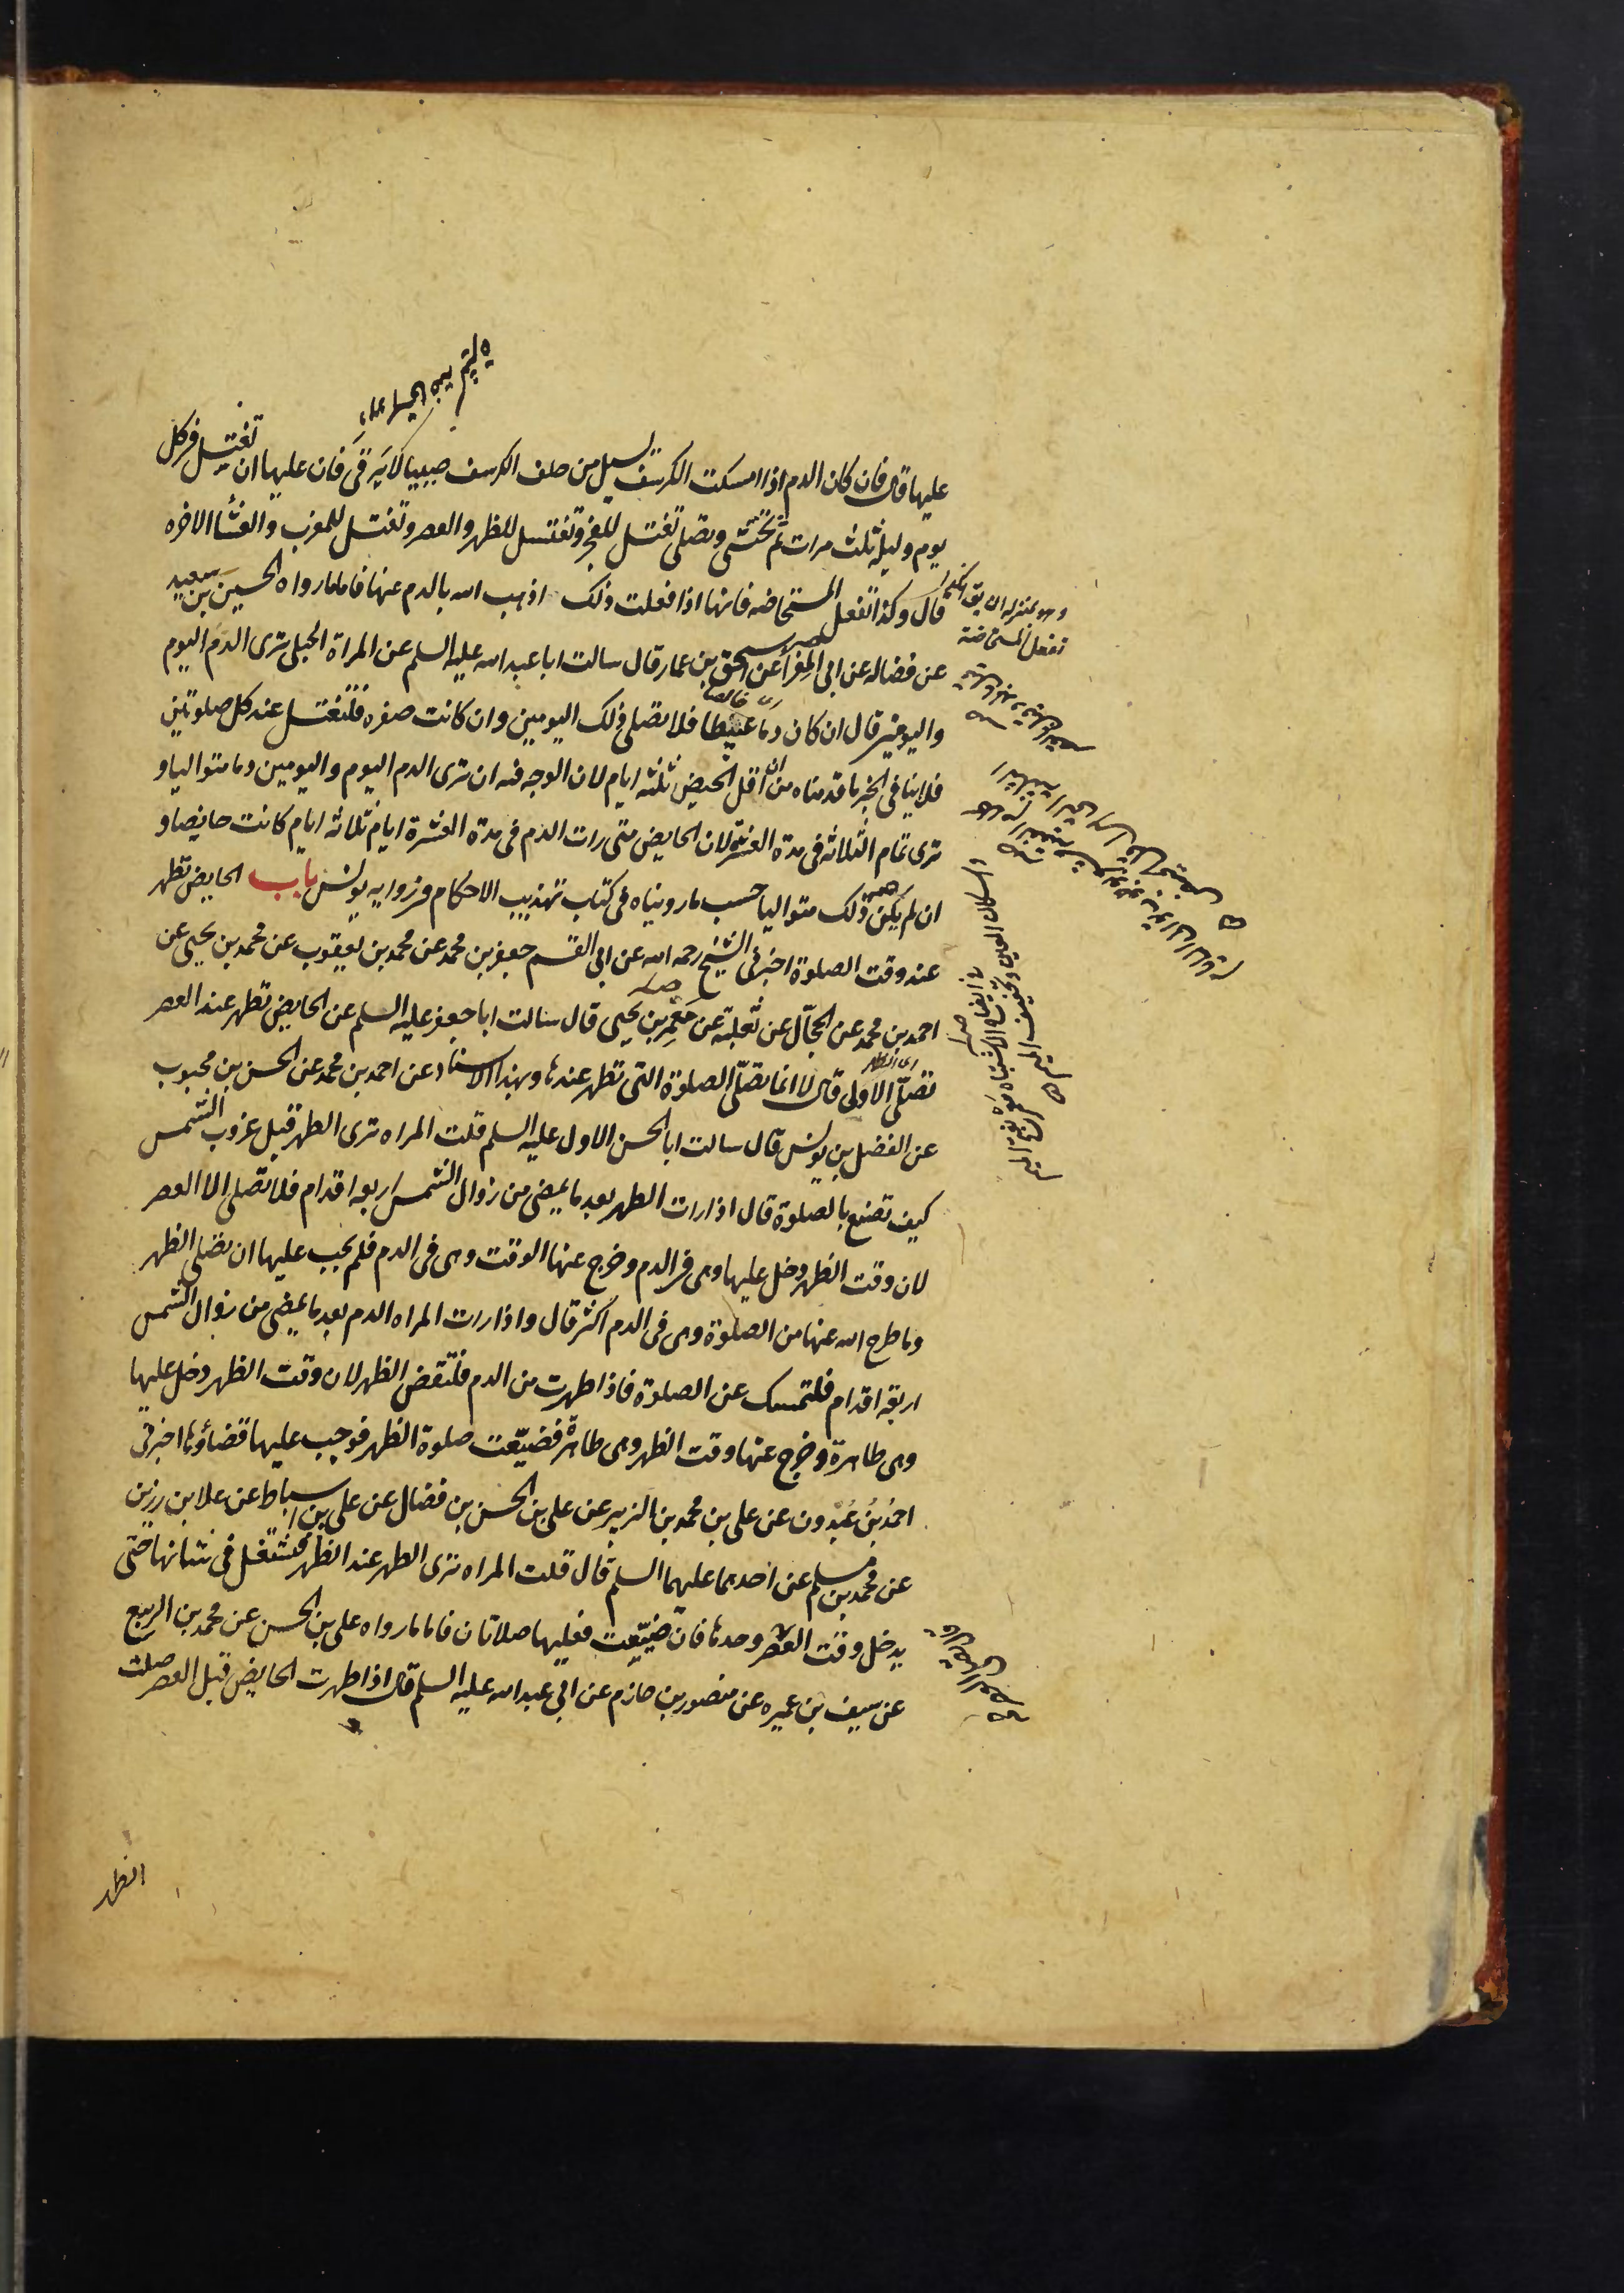 عليها قال فان كان الدم اذا امسكت الكرسف يسيل من خلف الكرسف صبيبا لا يرقى فان عليها ان تغتسل في كل
يوم وليلة ثلث مرات ثم تحتشى وتصلى تغتسل للفجر وتغتسل للظهر والعصر وتغتسل للمغرب والعشا الاخره
قال وكذا تفعل المستحاضه فانها اذا فعلت ذلك اذهب الله بالدم عنها فاما ما رواه الحسين بن سعيد
عن فضاله عن ابى المغرا عن اسحق بن عمار قال سالت ابا عبد الله عليه السلم عن المراة الحبلى ترى الدم اليوم
واليومين قال ان كان دما عبيطا فلا تصلى ذلك اليومين وان كانت صفره فلتغتسل عند كل صلوتين
فلا ينافى الخبر ما قدمناه من ان اقل الحيض ثلثه ايام لان الوجه فيه ان ترى الدم اليوم واليومين دما متواليا و
ترى تمام الثلاثه فى مدة العشرة لان الحايض متى رات الدم فى مدة العشرة ايام ثلاثه ايام كانت حايضا و
ان لم يكن ذلك متواليا حسب ما رويناه فى كتاب تهذيب الاحكام فى رواية يونس باب الحايض تطهر
عند وقت الصلوة اخبرنى الشيخ رحمه الله عن ابى القسم جعفر بن محمد عن محمد بن يعقوب عن محمد بن يحيى عن
احمد بن محمد عن الحجال عن ثعلبة عن معمر بن يحيى قال سالت ابا جعفر عليه السلم عن الحايض تطهر عند العصر
تصلى الاولى قال لا انما تصلى الصلوة التى تطهر عندها وبهذا الاسناد عن احمد بن محمد عن الحسن بن محبوب
عن الفضل بن يونس قال سالت ابا الحسن الاول عليه السلم قلت المراه ترى الطهر قبل غروب الشمس
كيف تصنع بالصلوة قال اذا رات الطهر بعد ما يمضى من زوال الشمس اربعه اقدام فلا تصلى الا العصر
لان وقت الظهر دخل عليها وهى فى الدم وخرج عنها الوقت وهى فى الدم فلم يجب عليها ان تصلى الظهر
وما طرح الله عنها من الصلوة وهى فى الدم اكثر قال واذا رات المراه الدم بعد ما يمضى من زوال الشمس
اربعه اقدام فلتمسك عن الصلوة فاذا طهرت من الدم فلتقض الظهر لان وقت الظهر دخل عليها
وهى طاهرة وخرج عنها وقت الظهر وهى طاهرة فضيعت صلوة الظهر فوجب عليها قضاؤها اخبرنى
احمد بن عبدون عن على بن محمد بن الزبير عن على بن الحسن بن فضال عن على بن اسباط عن علا بن رزين
عن محمد بن مسلم عن احدهما عليهما السلم قال قلت المراه ترى الطهر عند الظهر فتشتغل فى شانها حتى
يدخل وقت العصر قال تصلى العصر وحدها فان ضيعت فعليها صلاتان فاما ما رواه على بن الحسن عن محمد بن الربيع
عن سيف بن عميره عن منصور بن حازم عن ابى عبد الله عليه السلم قال اذا طهرت الحايض قبل العصر صلت
الظهر